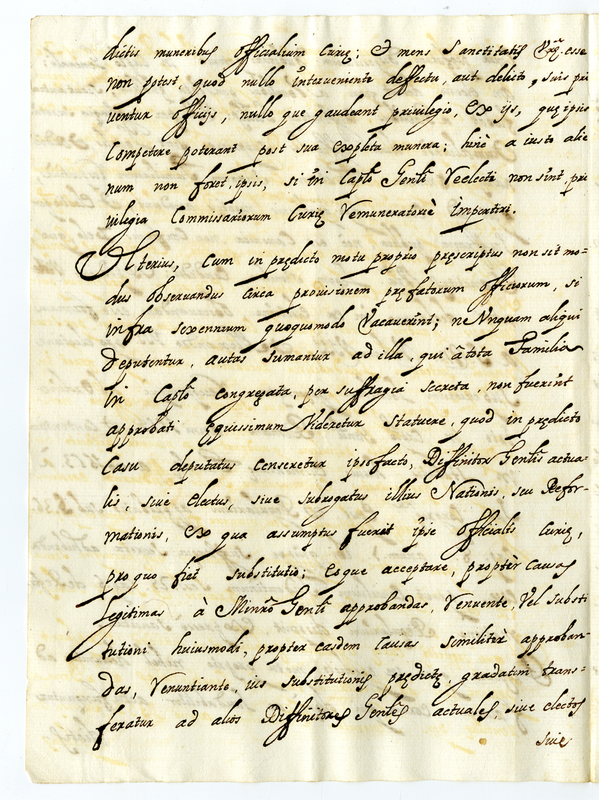 dictis muneribus officialium Curię; & mens Sanctitatis Vrę. esse
non potest, quod nullo interveniente deffectu, aut delicto, suis pri
ventur officijs, nullo que gaudeant privilegio, ex ijs, quę ipsis
Competere poterant post sua expleta munera; hinc a iusto alie
num non foret, ipsis, si in Caplo Genli Reelecti non sint, pri
vilegia Commissariorum Curię Remuneratoriè impertiri.
Ulterius, Cum in prędicto motu proprio pręscriptus non sit mo=
dus observandus Circa provisionem pręfatorum officiorum, si
infra sexennium quoquomodo Vacaverint; ne Unquam aliqui
deputentur, aut assumantur ad illa, qui â tota Familia
in Caplo congregata, per suffragia secreta, non fuerint
approbati ęquissimum Videretur Statuere, quod in prędicto
Casu deputatus censeretur ipsofacto, Diffinitor Genlis actua=
lis, sive electus, sive subrogatus illius Nationis, seu Refor=
mationis, ex qua assumptus fuerat ipse officialis Curię,
pro quo fiet substitutio; Eoque acceptare, proptèr Causas
legitimas à Minro Genli approbandas, Renuente, Vel substi
tutioni huiusmodi, propter easdem Causas similiter approban=
das, Renuntiante, ius substitutionis prędictę, gradatim trans=
feratur ad alios Diffinitores Genles actuales, sive electos
sive